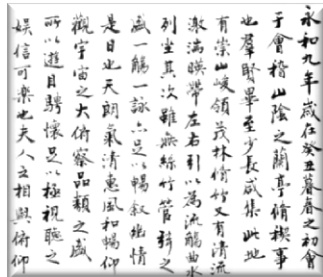 永和九年歲在癸丑暮春之初會
于會稽山陰之蘭亭脩禊事
也羣賢畢至少長咸集此地
有崇山峻領茂林脩竹又有清流
激湍暎帶左右引以為流觴曲水
列坐其次雖無絲竹管弦之
盛一觴一詠亦足以暢敘幽情
是日也天朗氣清惠風和暢仰
觀宇宙之大俯察品類之盛
所以遊目騁懷足以極視聽之
娛信可樂也夫人之相與俯仰